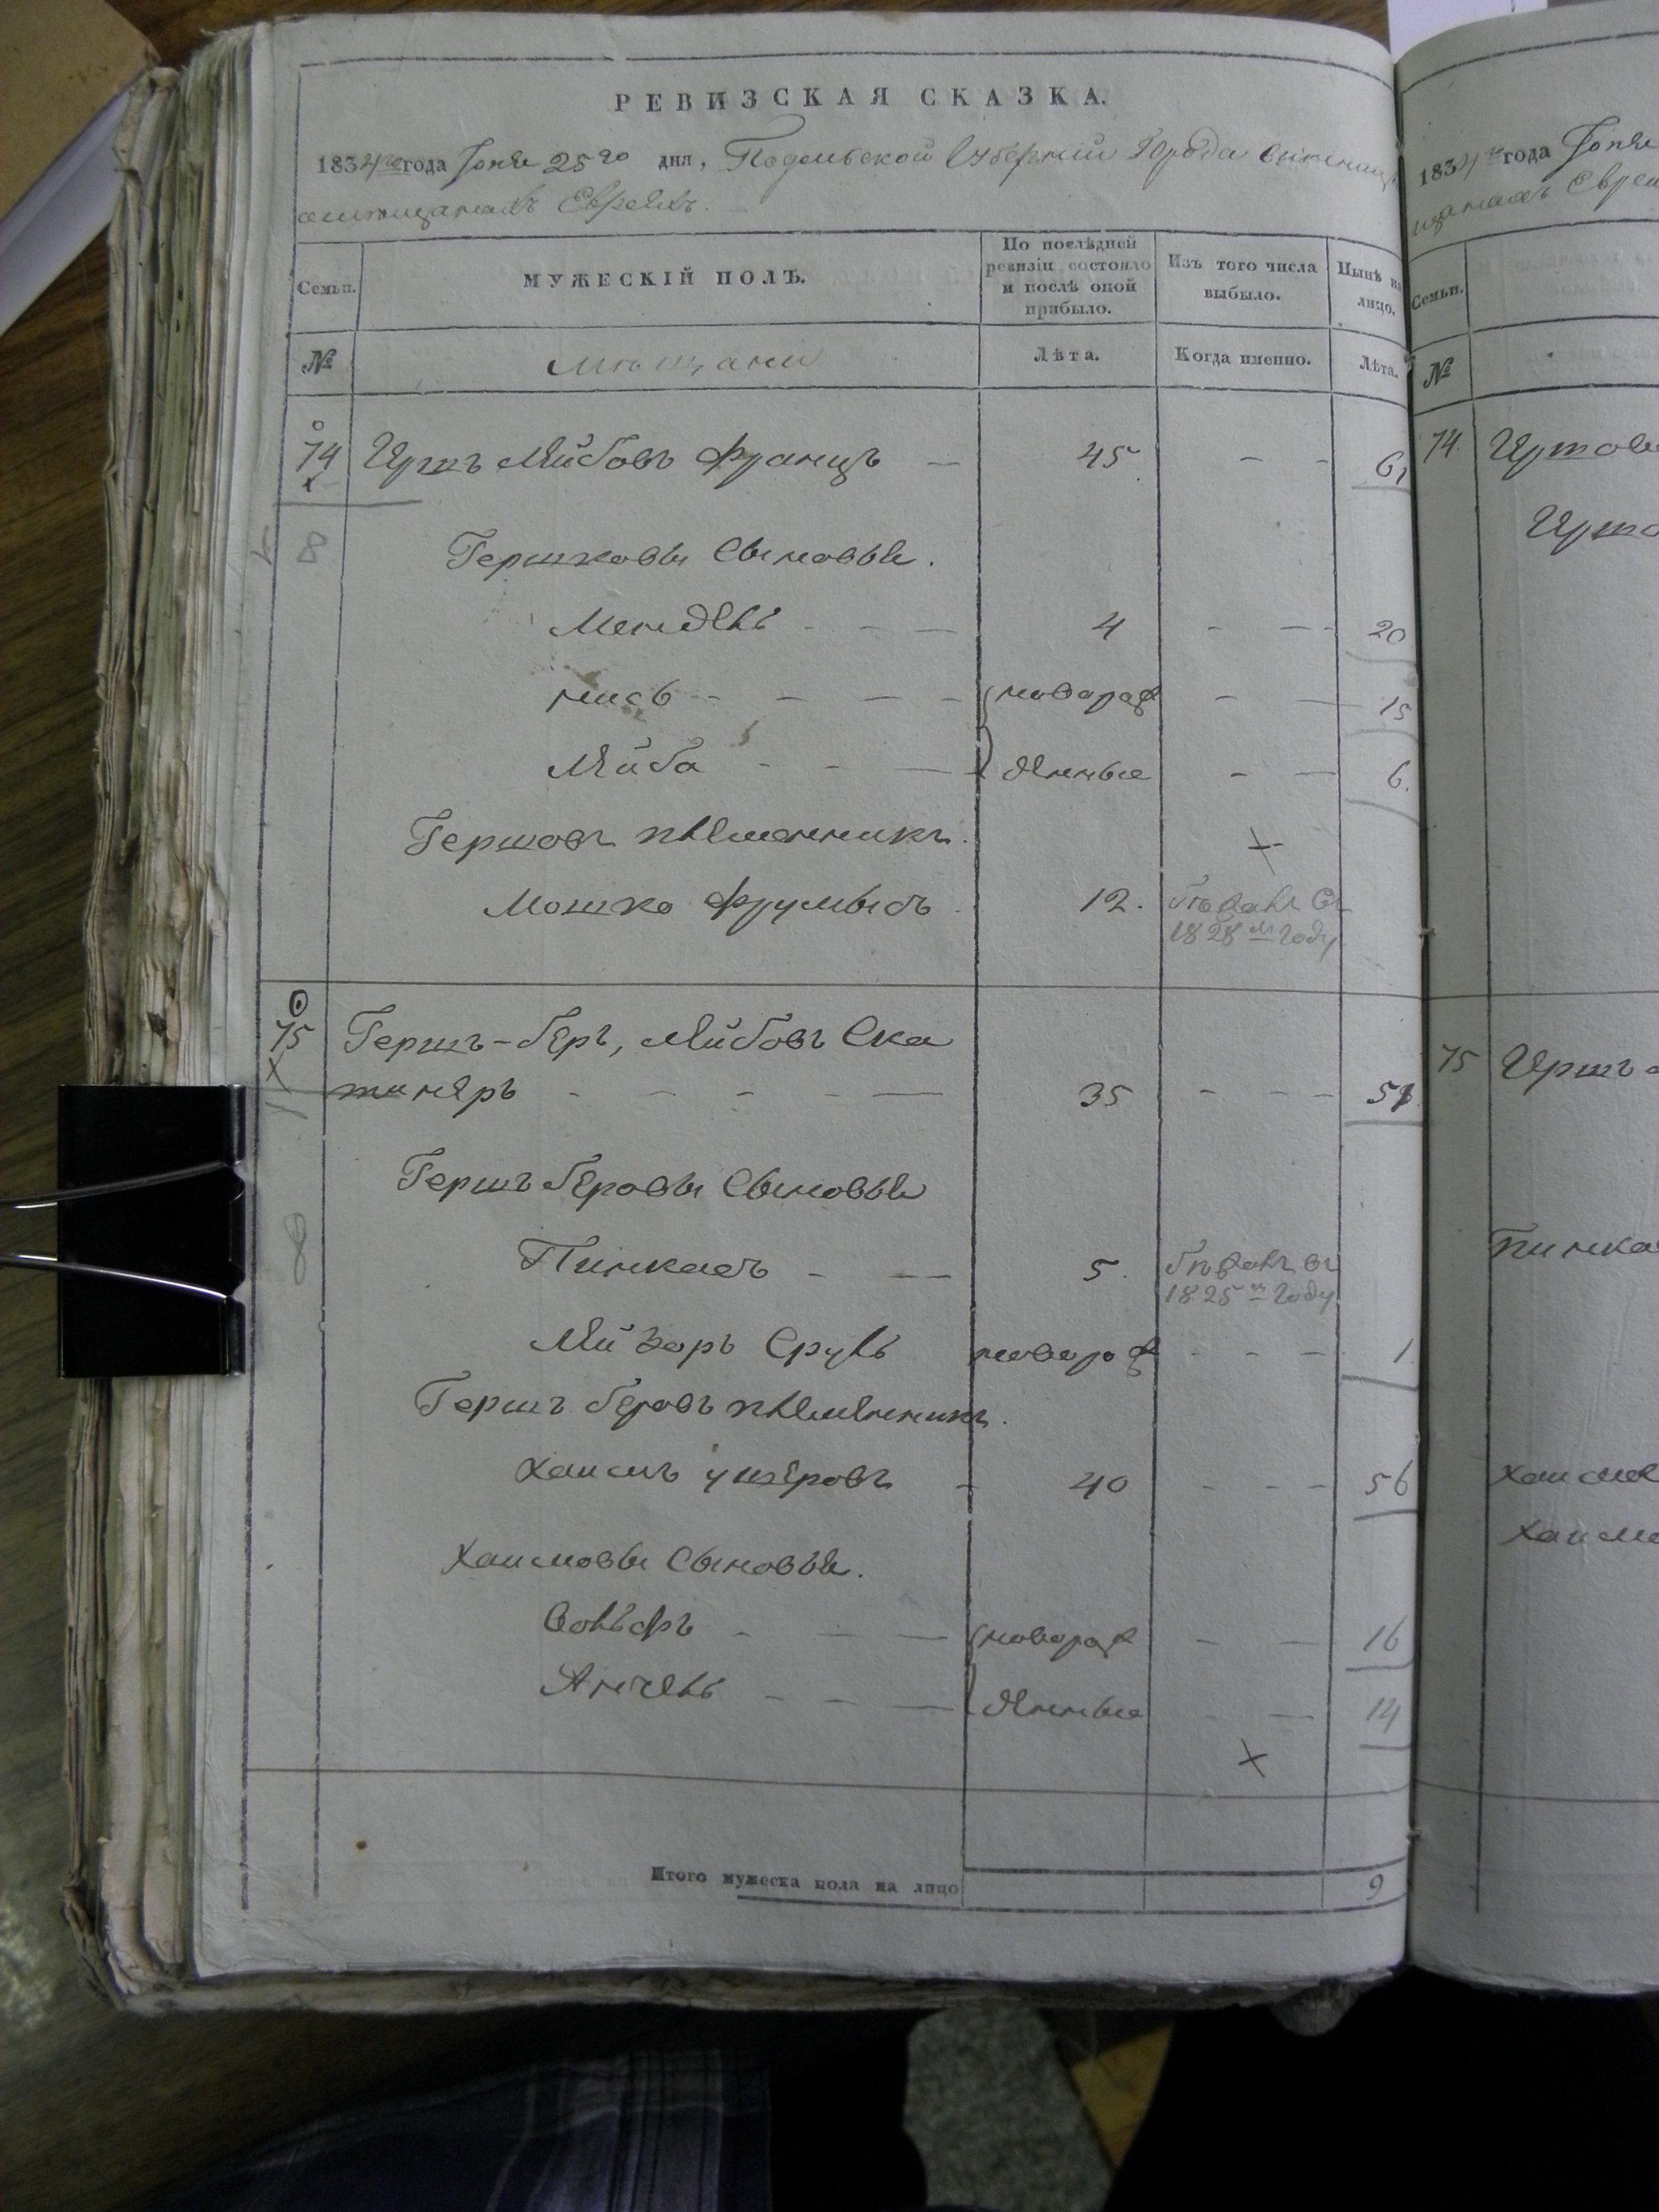 РЕВИЗСКАЯ СКАЗКА.
1834го года Іюня 25го дня, Подольской Губерніи Города
мѣщанахъ Евреяхъ.
Семьи.
МУЖЕСКІЙ ПОЛЪ.
По послѣдней ревизіи состояло и послѣ оной прибыло.
Изъ того числа выбыло.
Нынѣ на лицо.
№
мѣщани
Лѣта.
Когда именно.
Лѣта.
74 Гершъ Лейбовъ Францъ — 45 — — 61
8
Гершковы Сыновья.
Мендель - — — 4 - — - 20
- — — — новорож — — 15
Лейба - - — денные - — 6.
Гершовъ племенникъ.
Мошко Фрумысъ 12. бѣжалъ въ
1828м году
75 Гершъ-Беръ, Лейбовъ Ска
тинеръ - — — - — 35 - - - 51
8
Гершъ Беровы Сыновья
Пинкасъ - — 5. бѣжалъ въ
1825м году
Лейзоръ Сруль новорож - - — 1
Гершъ Беровъ племенникъ.
Хаимъ ушеровъ - 40 - - - 56
Хаимовы Сыновья.
Вольфъ - — — новорож — — 16
Анчель — - — денные - — 14
Итого мужеска пола на лицо 9
1834го года Іюня
щанахъ Евреи
Семьи.
№
74.
75
Пинка
Хаимов
Хаимо